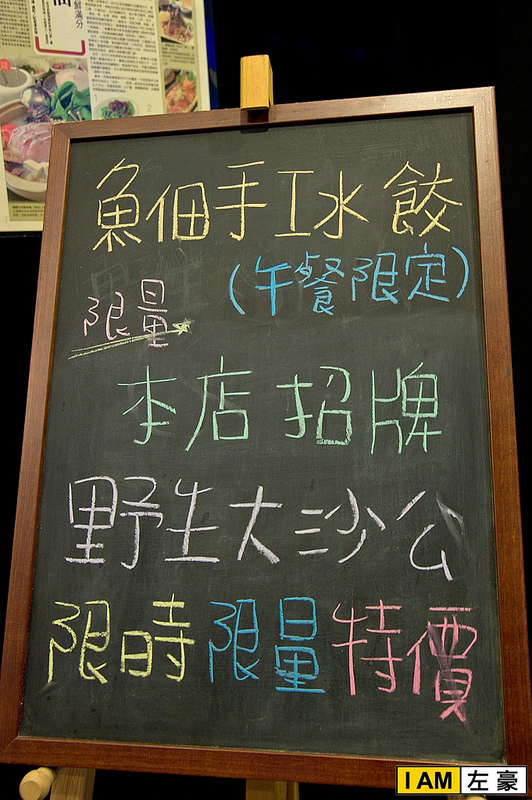 魚佃手工水餃
(午餐限定)
限量
本店招牌
野生大沙公
限時限量特價
I AM 左豪